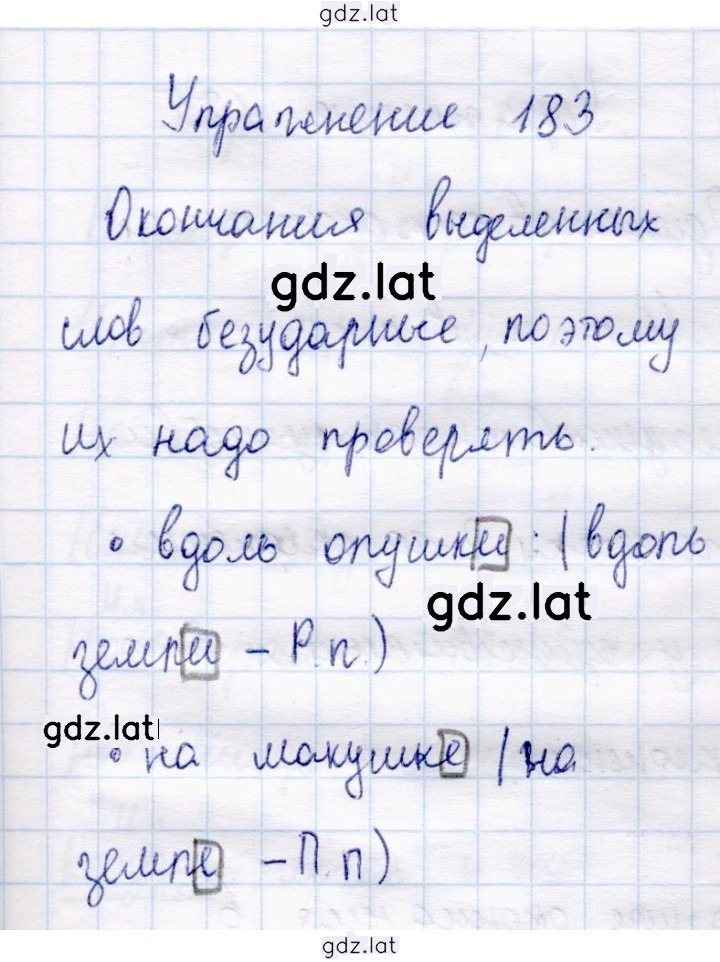 gdz.lat
Упражнение 183
Окончания выделенных
gdz.lat
слов безударные, поэтому
их надо проверять.
• вдоль опушки: (вдоль
gdz.lat
земли – Р.п.)
gdz.lat
• на макушке (на
земле – П.п)
gdz.lat